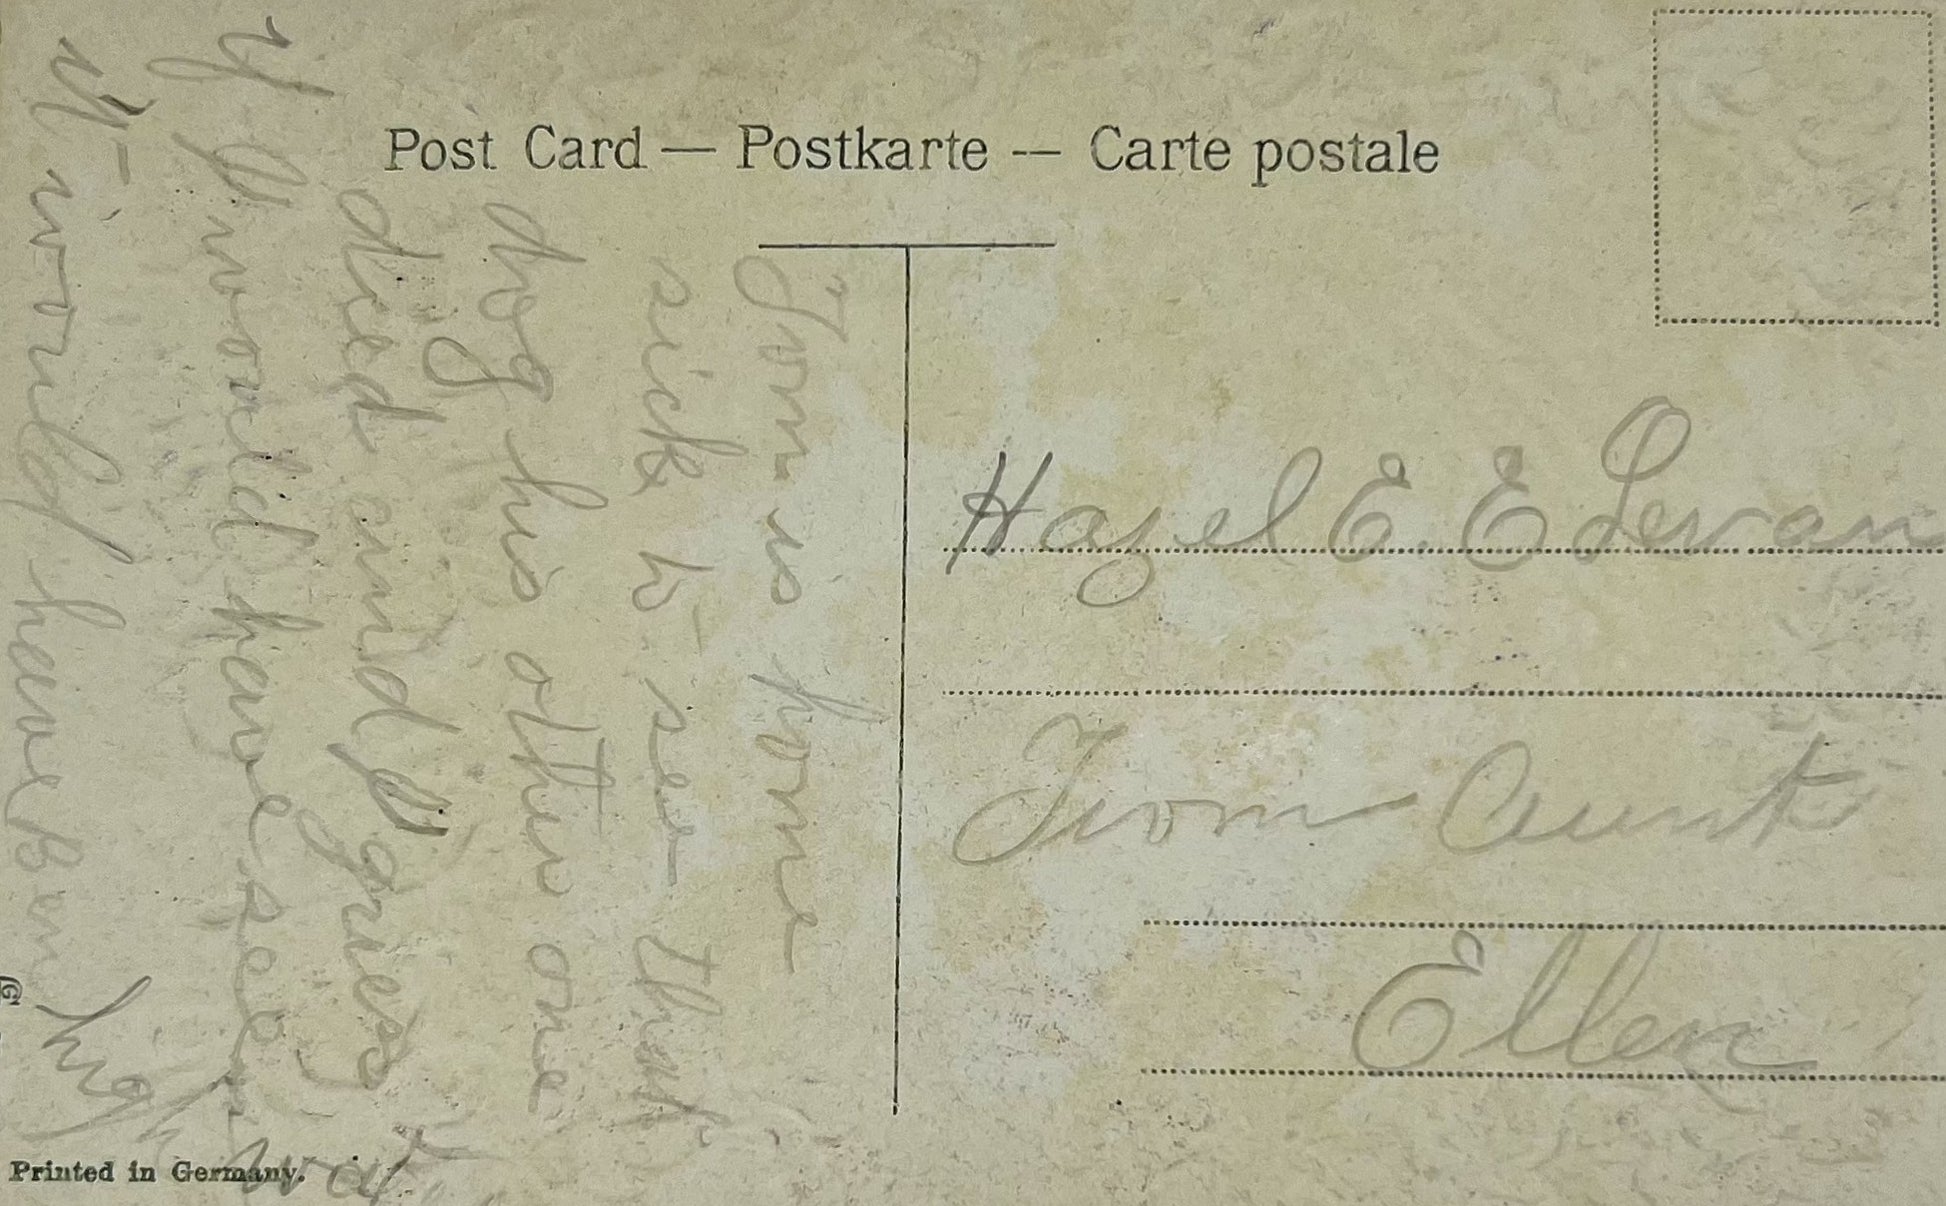 Post Card — Postkarte — Carte postale
Tom is home
sick to see that
dog his other one
died and he gries
if would have seen
it would have ben
Hazel E. E Levan
From Aunt
Ellen
Printed in Germany.